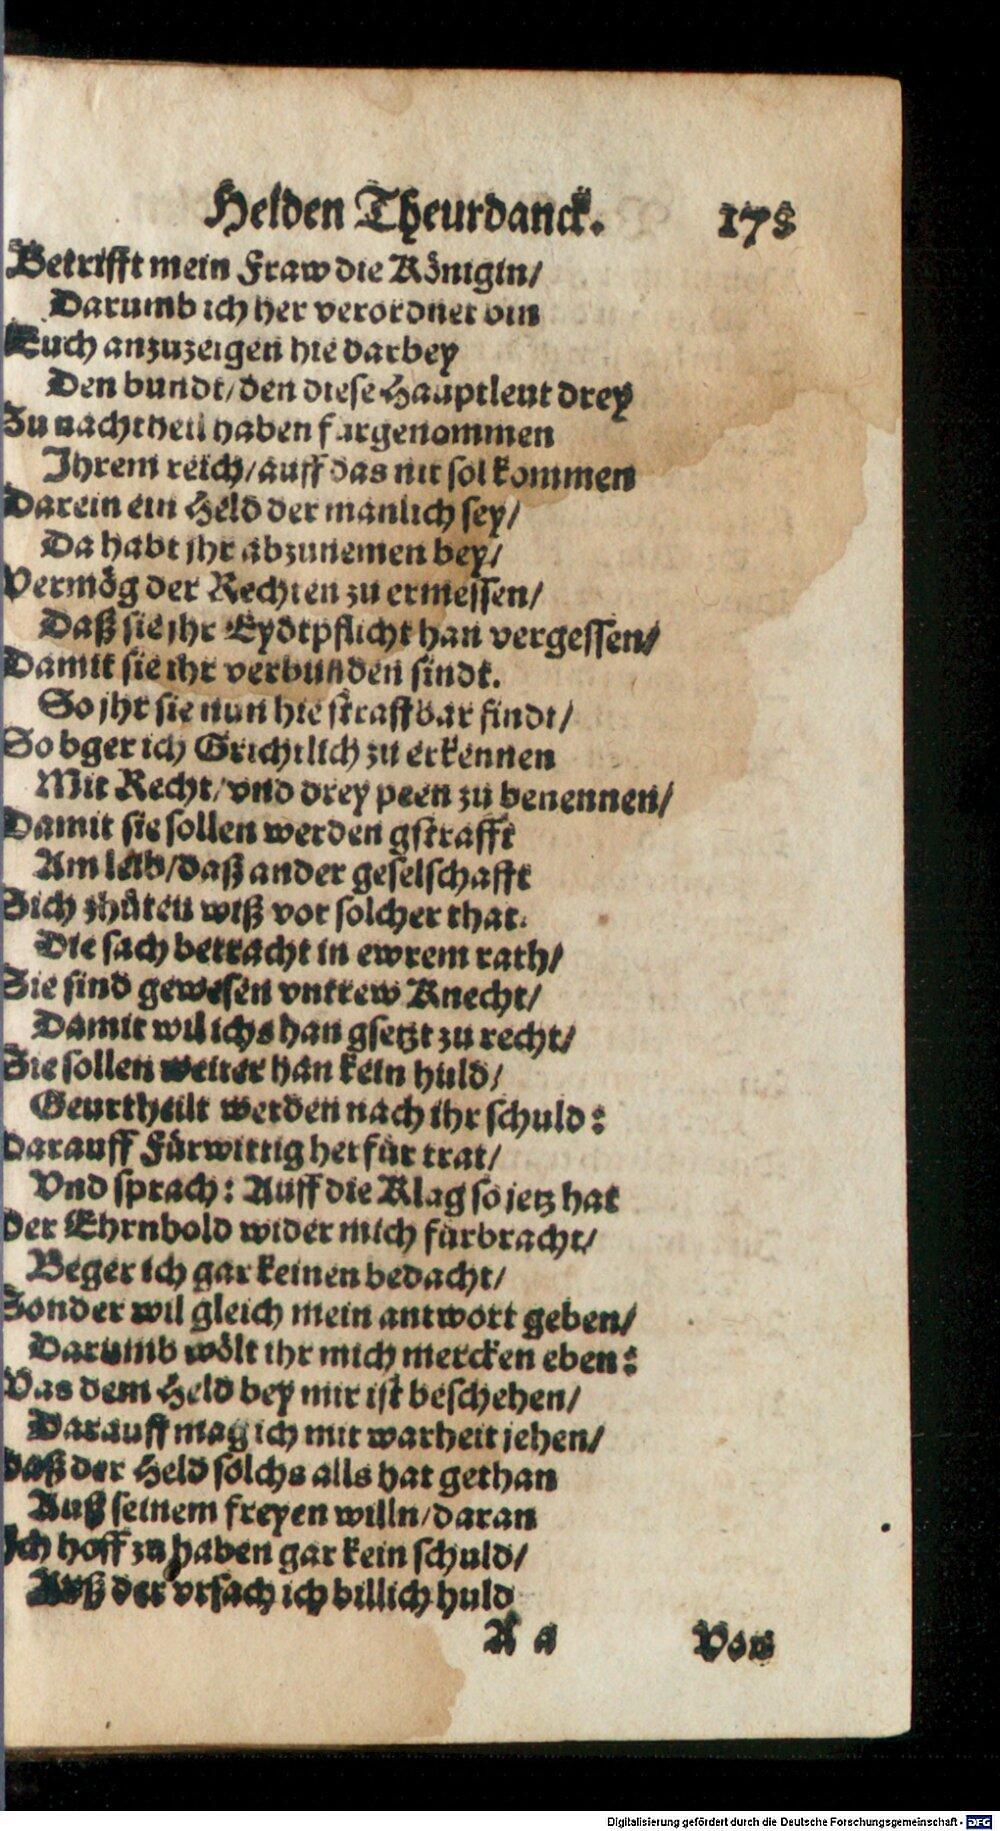 Helden Theurdanck. 175
Betrifft mein Fraw die Königin/
Darumb ich her verordnet bin
Euch anzuzeigen hie darbey
Den bundt/den diese Hauptleut drey
Zu nachtheil haben fürgenommen
Ihrem reich/auff das nit sol kommen
Darein ein Held der manlich sey/
Da habt jhr abzunemen bey/
Vermög der Rechten zu ermessen/
Daß sie jhr Eydtpflicht han vergessen/
Damit sie ihr verbunden sindt.
So jhr sie nun hie straffbar findt/
So bger ich Grichtlich zu erkennen
Mit Recht/vnd drey peen zu benennen/
Damit sie sollen werden gstrafft
Am leib/daß ander geselschafft
Sich zhüten wiß vor solcher that.
Die sach betracht in ewrem rath/
Sie sind gewesen vntrew Knecht/
Damit wil ichs han gsetzt zu recht/
Sie sollen weiter han kein huld/
Geurtheilt werden nach ihr schuld:
Darauff Fürwittig herfür trat/
Vnd sprach: Auff die Klag so jetz hat
Der Ehrnhold wider mich fürbracht/
Beger ich gar keinen bedacht/
Sonder wil gleich mein antwort geben/
Darumb wölt ihr mich mercken eben:
Was dem Held bey mir ist beschehen/
Darauff mag ich mit warheit jehen/
Daß der Held sölchs alls hat gethan
Auß seinem freyen willn/daran
Ich hoff zu haben gar kein schuld/
Auß der vrsach ich billich huld
A a Von
Digitalisierung gefördert durch die Deutsche Forschungsgemeinschaft - DFG